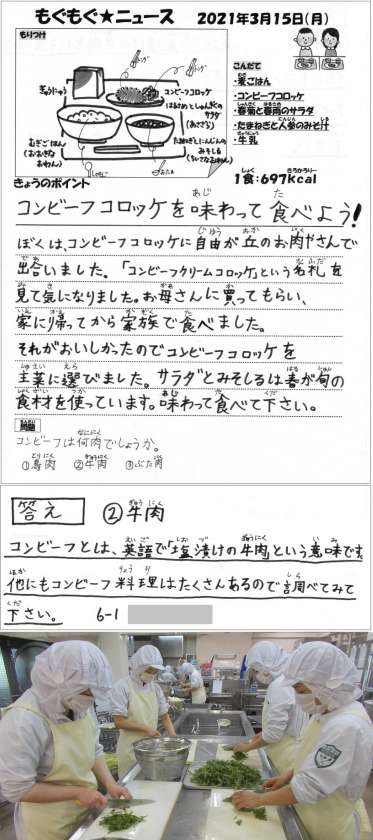 もぐもぐ★ニュース 2021年3月15日(月)
もりつけ
ぎゅうにゅう
コンビーフコロッケ
はるさめとしゅんぎくのサラダ
(あさざら)
むぎごはん
(おおきなおわん)
たまねぎとにんじんのみそしる
(ちいさなおわん)
こんだて
・麦ごはん
・コンビーフコロッケ
・春菊と春雨のサラダ
・たまねぎと人参のみそ汁
・牛乳
1食:697kcal
きょうのポイント
コンビーフコロッケを味わって食べよう!
ぼくは、コンビーフコロッケに自由が丘のお肉やさんで
出合いました。「コンビーフクリームコロッケ」という名札を
見て気になりました。お母さんに買ってもらい、
家に帰ってから家族で食べました。
それがおいしかったのでコンビーフコロッケを
主菜に選びました。サラダとみそしるは春が旬の
食材を使っています。味わって食べて下さい。
問題
コンビーフは何肉でしょうか。
①鳥肉 ②牛肉 ③ぶた肉
答え ②牛肉
コンビーフとは、英語で「塩漬けの牛肉」という意味です。
他にもコンビーフ料理はたくさんあるので調べてみて
下さい。 6-1